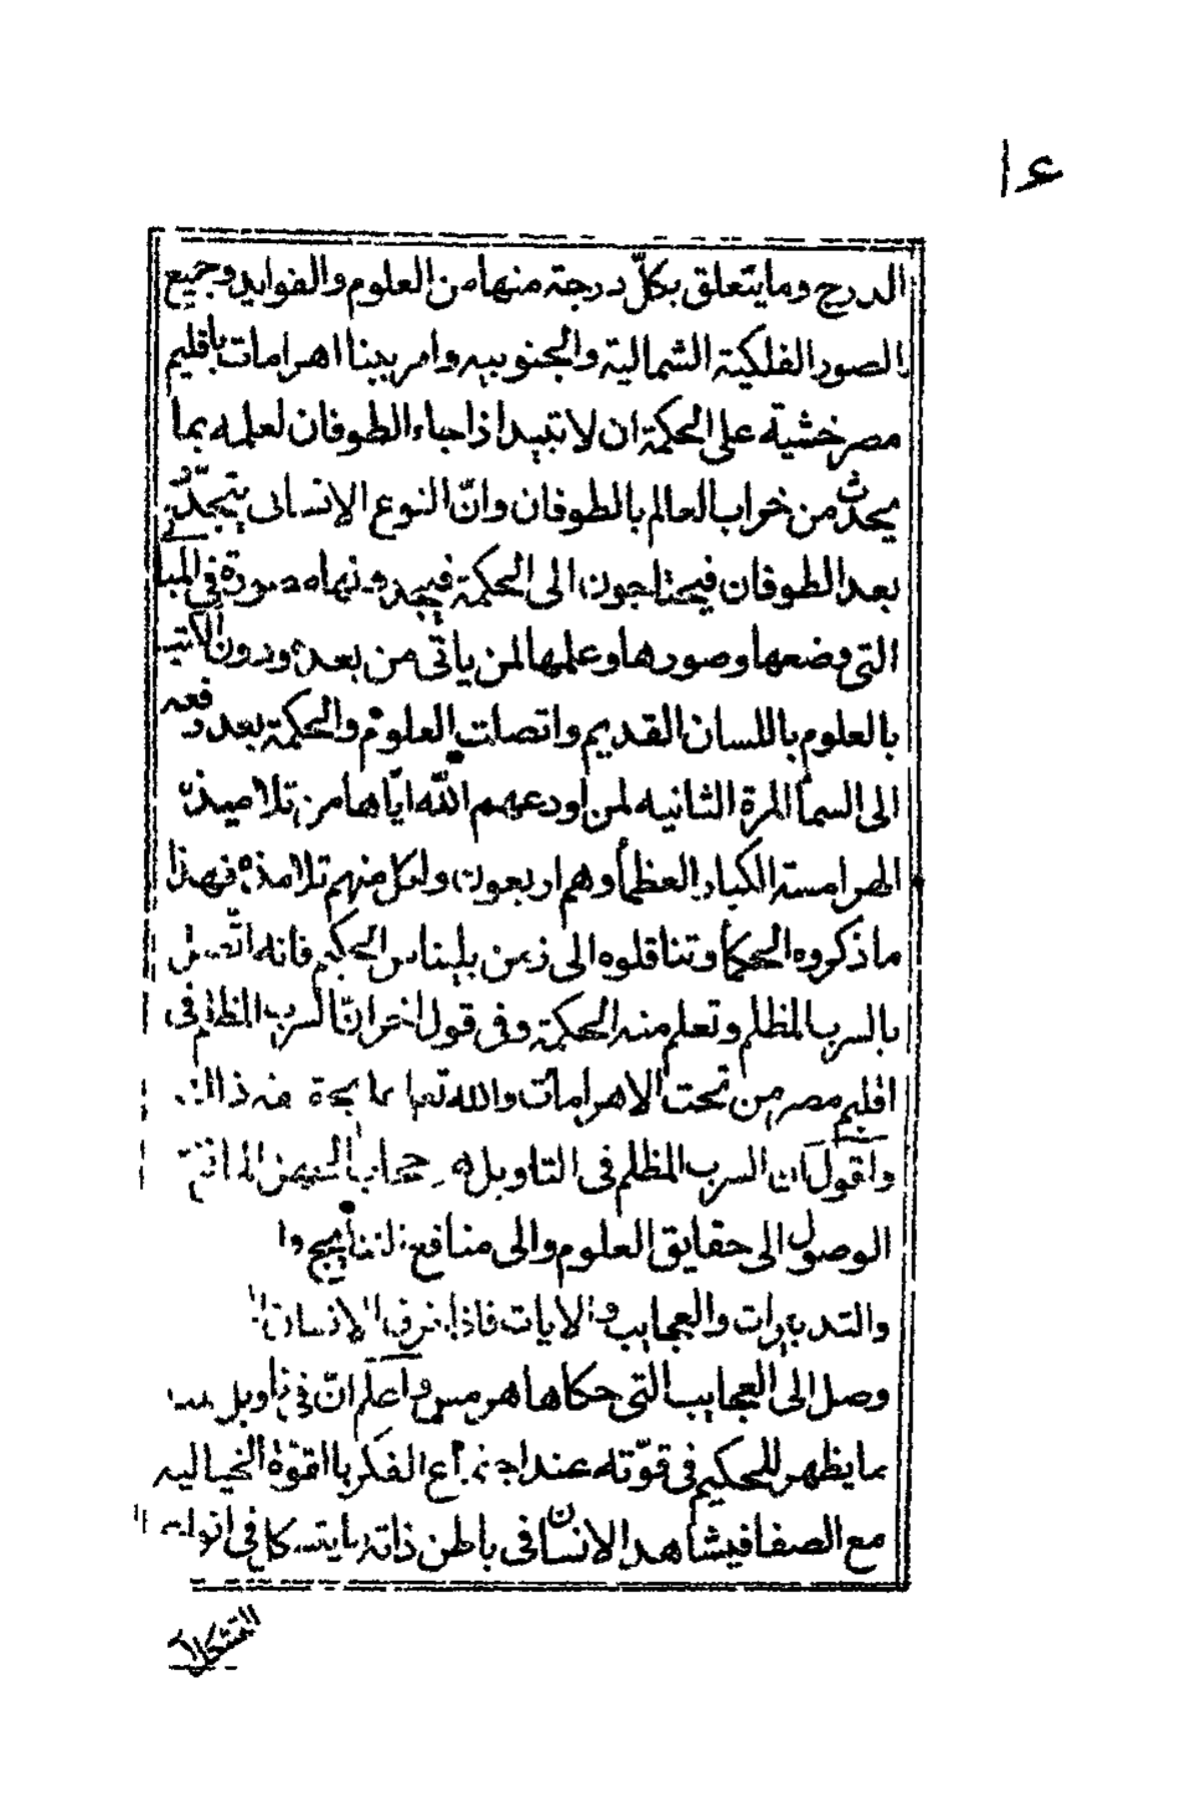 ١٤
الدرج وما يتعلق بكلّ درجة منها من العلوم والفوايد وجميع
الصور الفلكية الشمالية والجنوبيه وامر ببنا اهرامات باقليم
مصر خشية على الحكمة ان لا تبيد اذا جاء الطوفان لعلمه بما
يحدث من خراب العالم بالطوفان وانّ النوع الانسانى يتجدّد
بعد الطوفان فيحتاجون الى الحكمة فيجدونها مصورة فى المبانى
التى وضعها وصورها وعلمها لمن ياتى من بعده ودون الكتب
بالعلوم باللسان القديم واتصلت العلوم والحكمة بعد رفعه
الى السمآ المرة الثانيه لمن اودعهم الله ايّاها من تلاميذ
الهرامسة الكبار العظمآ وهم اربعون ولكل منهم تلامذه فهذا
ما ذكروه الحكمآ وتناقلوه الى زمن بليناس الحكيم فانه اتّصل
بالسرب المظلم وتعلم منه الحكمة وفى قول اخر انّ السرب المظلم فى
اقليم مصر من تحت الاهرامات والله تعا
واقول ان السرب المظلم فى التاويل هو حجاب
الوصول الى حقايق العلوم والى منافع النتايج وا
والتدبيرات والعجايب والايات فاذا الانسان
وصل الى العجايب التى حكاها هرمس واعلم انّ فى تاويل
ما يظهر للحكيم فى قوّته عند اجتماع الفكر باالقوّة الخياليه
مع الصفا فيشاهد الانسان فى باطن ذاته ما يتشكل فى انواع
التشكلات